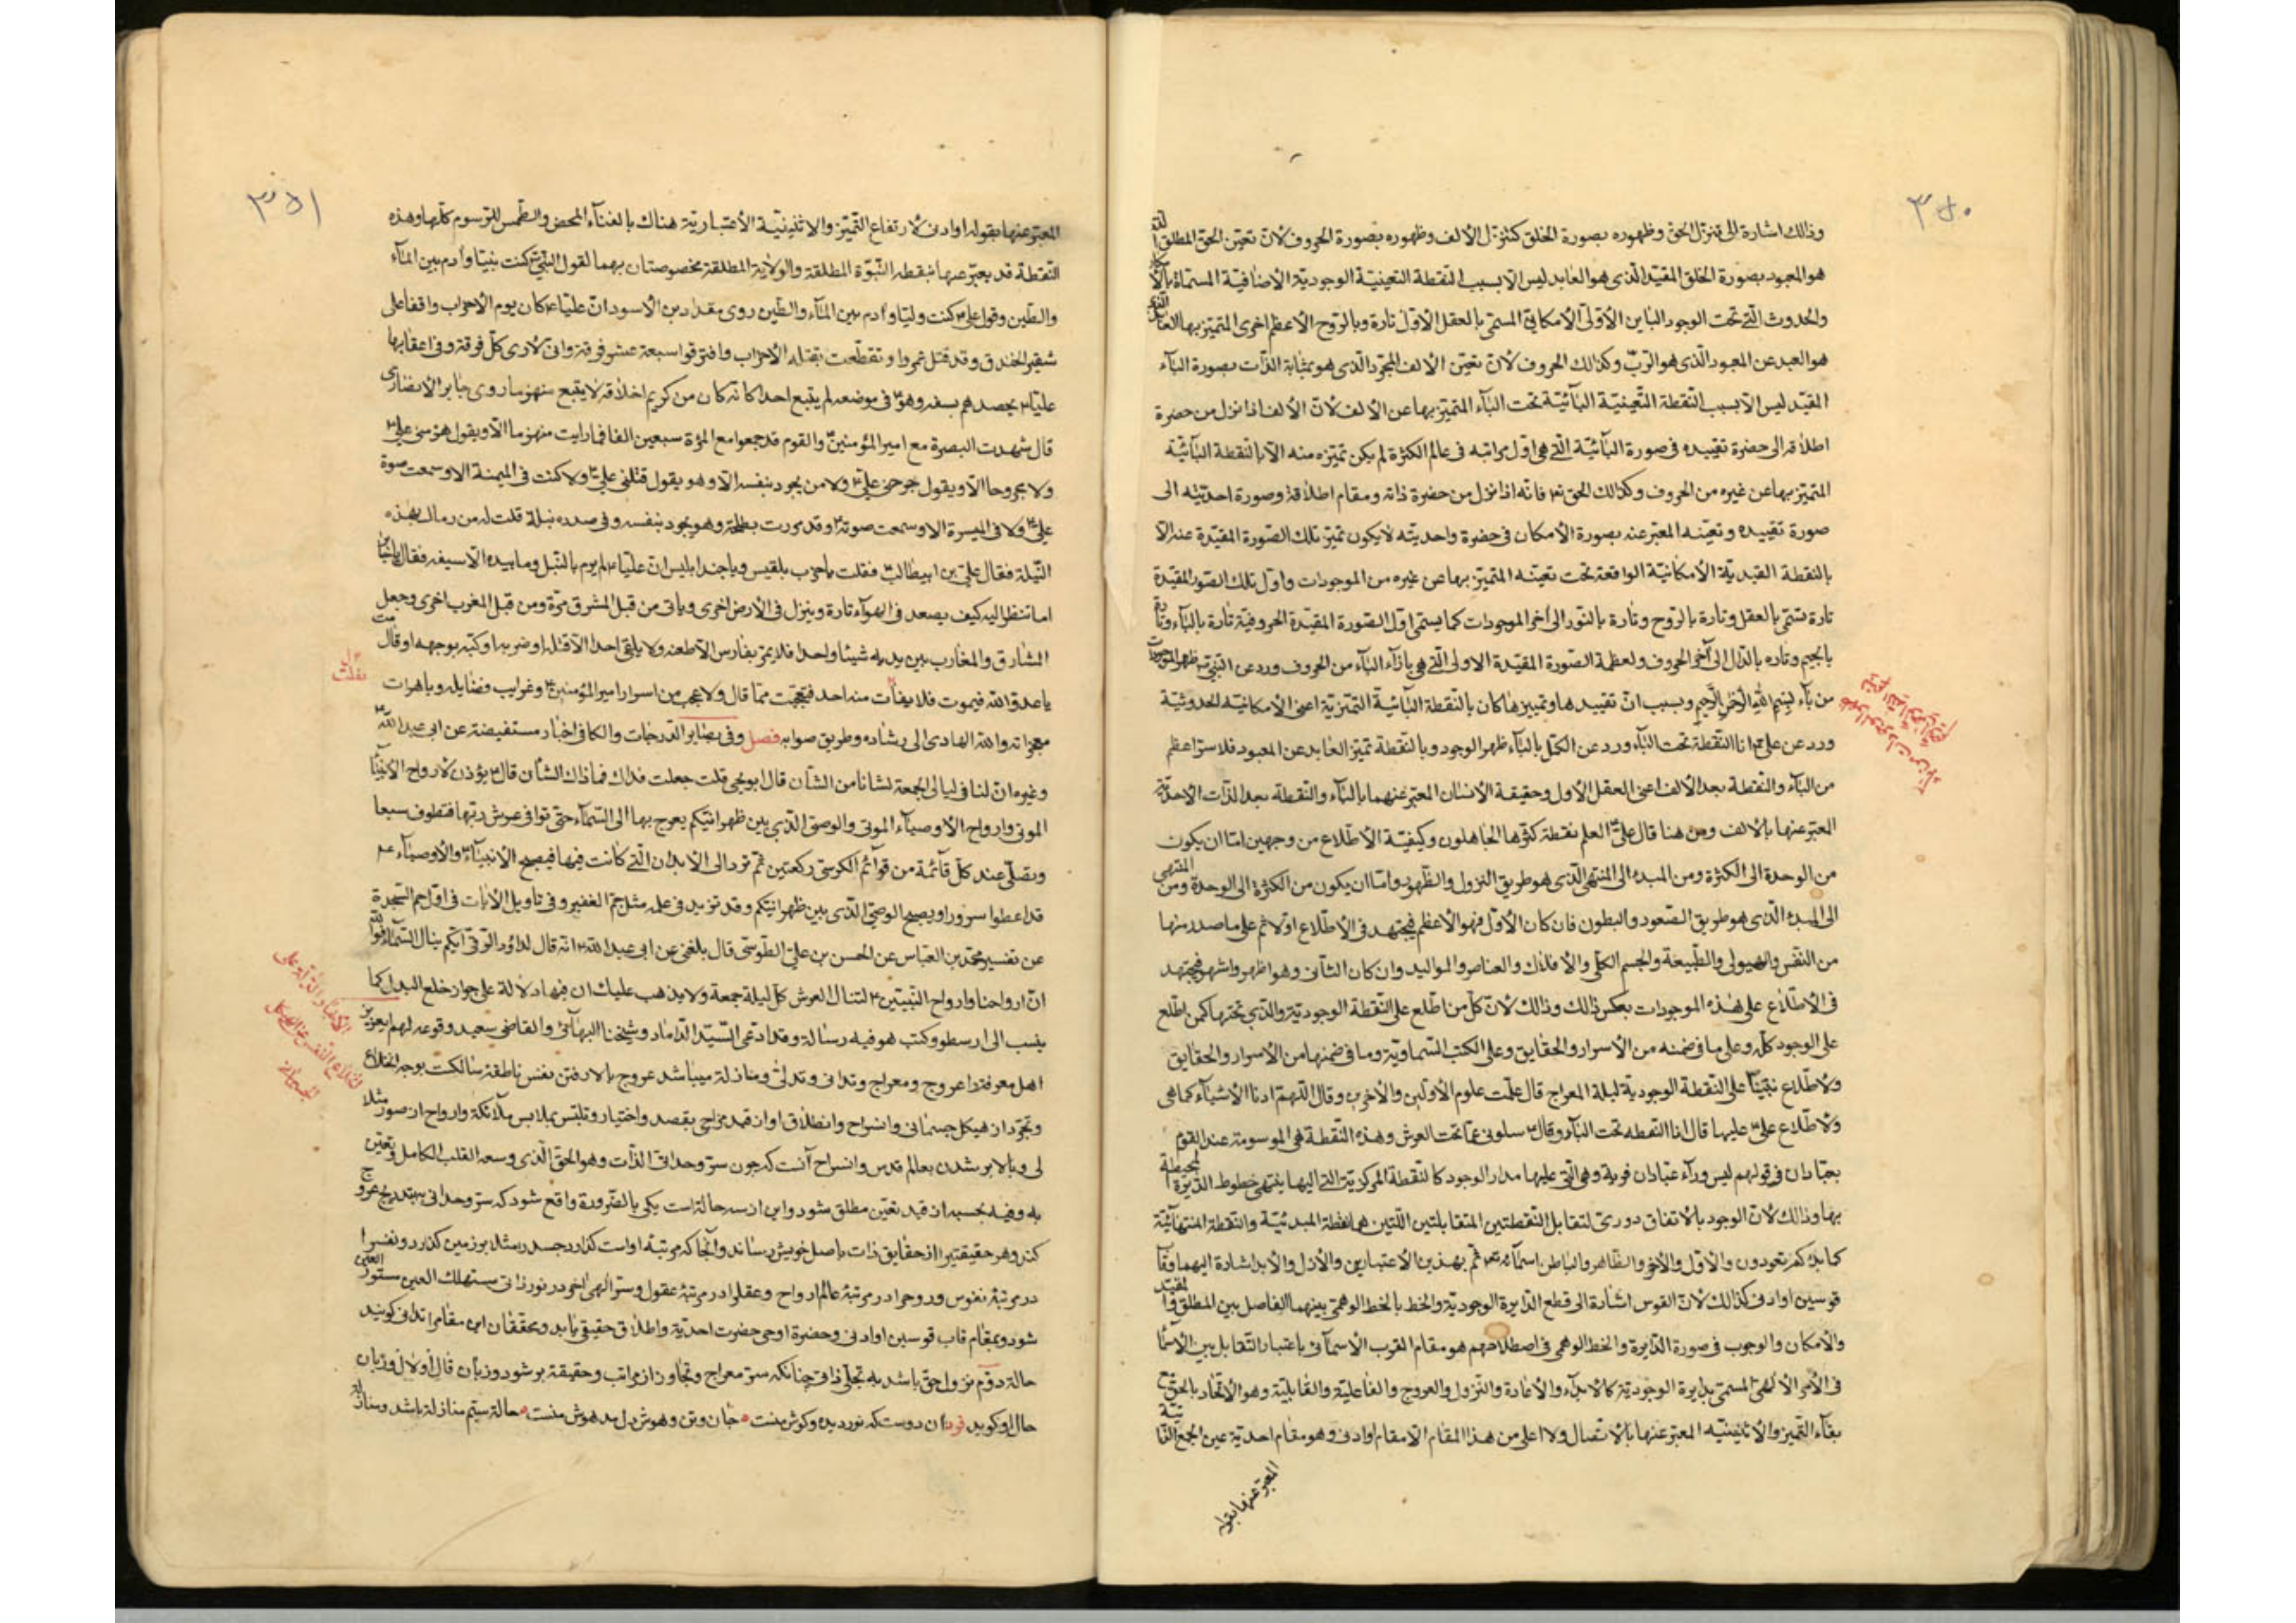 ٣٥٠
وذلك اشارة الى تنزل الحق وظهوره بصورة الخلق كتنزل الألف وظهوره بصورة الحروف لأن تعين الحق المطلق الذى
هو المعبود بصورة الخلق المقيد الذى هو العابد ليس الا بسبب النقطة التعينية الوجودية الأضافية المسماة بالأمكان
والحدوث التى تحت الوجود الباين الأولى الأمكانى المسمى بالعقل الأول تارة وبالروح الأعظم اخرى المتميز بها العابد الذى
هو العبد عن المعبود الذى هو الرب وكذلك الحروف لأن تعين الألف المجرد الذى هو بمثابة الذات بصورة الباء
المقيد ليس الا بسبب النقطة التعينية البائية تحت الباء المتميز بها عن الألف لأن الألف اذا نزل من حضرة
اطلاقه الى حضرة تقييده فى صورة البائية التى هى اول مراتبه فى عالم الكثرة لم يكن تميزه منه الا بالنقطة البائية
المتميز بها عن غيره من الحروف وكذلك الحق تع فانه اذا نزل من حضرة ذاته ومقام اطلاقه وصورة احديته الى
صورة تقييده وتعينه المعبر عنه بصورة الأمكان فى حضرة واحديته لا يكون تميز تلك الصورة المقيدة عنه الا
بالنقطة القيدية الأمكانية الواقعة تحت تعينه المتميز بها عن غيره من الموجودات واول تلك الصور المقيدة
تارة تسمى بالعقل وتارة بالروح وتارة بالنور الى آخر الموجودات كما يسمى اول الصورة المقيدة الحروفية تارة بالباء وتارة
بالجيم وتاره بالدال الى آخر الحروف ولعظمة الصورة المقيدة الاولى التى هى بازاء الباء من الحروف ورد عن النبى ص ظهر الموجودات
من باء بسم الله الرحمن الرحيم وبسبب ان تقييدها وتمييزها كان بالنقطة البائية التميزية اعنى الأمكانية الحدوثية
ورد عن على ع انا النقطة تحت الباء ورد عن الكمل بالباء ظهر الوجود وبالنقطة تميز العابد عن المعبود فلا سر اعظم
من الباء والنقطة بعد الألف اعنى العقل الأول وحقيقة الأنسان المعبر عنهما بالباء والنقطة بعد الذات الأحدية
المعبر عنها بالألف ومن هنا قال على ع العلم نقطة كثرها الجاهلون وكيفية الأطلاع من وجهين اما ان يكون
من الوحدة الى الكثرة ومن المبدء الى المنتهى الذى هو طريق النزول والظهور واما ان يكون من الكثرة الى الوحدة ومن المنتهى
الى المبدء الذى هو طريق الصعود والبطون فان كان الأول فهو الأعظم فيجتهد فى الأطلاع اولا ثم على ما صدر منها
من النفس والهيولى والطبيعة والجسم الكلى والأفلاك والعناصر والمواليد وان كان الثانى وهو اظهر واشهر فيجتهد
فى الأطلاع على هذه الموجودات بعكس ذلك وذلك لأن كل من اطلع على النقطة الوجودية والذى تحتها كمن اطلع
على الوجود كله وعلى ما فى ضمنه من الأسرار والحقايق وعلى الكتب السماوية وما فى ضمنها من الأسرار والحقايق
ولأطلاع نبينا على النقطة الوجودية ليلة المعراج قال علمت علوم الأولين والأخرين وقال اللهم ارنا الأشياء كما هى
ولأطلاع على ع عليها قال انا النقطه تحت الباء وقال ع سلونى عما تحت العرش وهذه النقطة هى الموسومة عند القوم
بعبادان فى قولهم ليس وراء عبادان قرية وهى التى عليها مدار الوجود كالنقطة المركزية التى اليها ينتهى خطوط الدايرة المحيطة
بها وذلك لأن الوجود بالاتفاق دورى لتقابل النقطتين المتقابلتين اللتين هما نقطة المبدئية والنقطة المنتهائية
كما بدءكم تعودون والأول والأخر والظاهر والباطن اسمائه تع ثم بهذين الأعتبارين والأزل والأبد اشارة اليهما وقاب
قوسين او ادنى كذلك لأن القوس اشارة الى قطع الدايرة الوجودية والخط بالخط الوهمى بينهما الفاصل بين المطلق والمقيد
والأمكان والوجوب فى صورة الدايرة والخط الوهمى فى اصطلاحهم هو مقام القرب الأسمائى باعتبار التقابل بين الأسماء
فى الأمر الألهى المسمى بدايرة الوجودية كالأبداء والأعادة والنزول والعروج والفاعلية والقابلية وهو الأتحاد بالحق مع
بقاء التميز والأثنينيه المعبر عنها بالأتصال ولا اعلى من هذا المقام الا مقام او ادنى وهو مقام احدية عين الجمع الذاتية
المعبر عنها بقوله
٣٥١
المعبر عنها بقوله او ادنى لأرتفاع التميز والاثنينية الأعتبارية هناك بالفناء المحض والطمس للرسوم كلها وهذه
النقطة قد يعبر عنها بنقطه النبوة المطلقة والولاية المطلقة مخصوصتان بهما لقول النبى ص كنت نبيا وآدم بين الماء
والطين وقول على ع كنت وليا وآدم بين الماء والطين روى مقداد بن الأسود ان عليا ع كان يوم الأحزاب واقفا على
شفير الخندق وقد قتل عمروا وتقطعت بقتله الأحزاب وافترقوا سبعة عشر فرقة وانى لأرى كل فرقة وفى اعقابها
عليا ع يحصدهم بسيفه وهو ع فى موضعه لم يتبع احدا كانه كان من كريم اخلاقه لا يتبع منهزما روى جابر الأنصارى
قال شهدت البصرة مع امير المؤمنين ع والقوم قد جمعوا مع المرأة سبعين الفا فما رايت منهزما الا ويقول هزمنى على ع
ولا مجروحا الا ويقول جرحنى على ع ولا من يجود بنفسه الا وهو يقول قتلنى على ع ولا كنت فى الميمنة الا وسمعت صوة
على ع ولا فى الميسرة الا وسمعت صوته ع وقد مررت بطلحة وهو يجود بنفسه وفى صدره نبلة قلت له من رماك بهذه
النبلة فقال على بن ابيطالب ع فقلت ياحزب بلقيس وياجند ابليس ان عليا ع لم يرم بالنبل وما بيده الا سيفه فقال ياجابر
اما تنظر اليه كيف يصعد فى الهواء تارة وينزل فى الأرض اخرى وياتى من قبل المشرق مرة ومن قبل المغرب اخرى وجعل
المشارق والمغارب بين يديه شيئا واحدا فلا يمر بفارس الا طعنه ولا يلقى احدا الا قتله او ضربه او كبه بوجهه او قال مت
ياعدو الله فيموت فلا يفلت منه احد فتعجبت مما قال ولا عجب من اسرار امير المؤمنين ع وغرايب فضايله وباهرات
معجزاته والله الهادى الى رشاده وطريق صوابه فصل وفى بصاير الدرجات والكافى اخبار مستفيضة عن ابى عبد الله ع
وغيره ان لنا فى ليالى الجمعة لشانا من الشان قال ابو يحيى قلت جعلت فداك فما ذاك الشان قال ع يؤذن لأرواح الأنبياء
الموتى وارواح الأوصياء الموتى والوصى الذى بين ظهرانيكم يعرج بها الى السماء حتى توافى عرش ربها فتطوف سبعا
وتصلى عند كل قائمة من قوائم الكرسى ركعتين ثم ترد الى الأبدان التى كانت فيها فيصبح الأنبياء ع والأوصياء ع
قد اعطوا سرورا ويصبح الوصى الذى بين ظهرانيكم وقد تزيد فى علمه مثل جم الغفير وفى تاويل الأيات فى اول حم السجدة
عن تفسير محمد بن العباس عن الحسن بن على الطوسى قال بلغنى عن ابى عبد الله ع انه قال لداود الرقى ايكم ينال السماء فوالله
ان ارواحنا وارواح النبيين ع لتنال العرش كل ليلة جمعة ولا يذهب عليك ان فيها دلالة على جواز خلع البدن كما
ينسب الى ارسطو وكتب هو فيه رسالة وقد ادعى السيد الداماد وشيخنا البهائى والقاضى سعيد وقوعه لهم
اهل معرفترا عروج ومعراج وتدانى وتدلى ومنازلة ميباشد عروج بالا رفتن نفس ناطقه سالكست بوجه انخلاع
وتجرد از هيكل جسمانى وانسراح وانطلاق او از قيد مزاجى بقصد واختيار وتلبس بملابس ملائكة وارواح از صور مثلا
لى وبالا بر شدن بعالم قدس وانسراح آنست كه چون سر وحدانى الذات وهو الحق الذى وسعه القلب الكامل وتعين
به وفيه بحسبه از قيد تعين مطلق شود واين از سه حالة است يكى بالضرورة واقع شود كه سر وحدانى بتدريج عروج
كند وهر حقيقتيرا از حقايق ذات باصل خويش رساند وآنجا كه مرتبه اواست گذارد جسد را مثلا بر زمين گذارد ونفس را
در مرتبه نفوس وروح را در مرتبه عالم ارواح وعقل را در مرتبه عقول وسر الهى اخر در نور ذاتى مستهلك العين مستور العلمى
شود وبمقام قاب قوسين او ادنى وحضرة اوحى حضرت احدية واطلاق حقيقى يابد ومحققان اين مقام را تدانى گويند
حالة دوم نزول حق باشد به تجلى ذاتى چنانكه سر معراج وتجاوز از مراتب وحقيقة بر شود وزبان قال اولا ل وزبان
حال او گويد فرد آن دوست كه نور ديده وگوش منست جان وتن وهوش دل مدهوش منست حالة سيم منازلة باشد ومنازله
يفلت